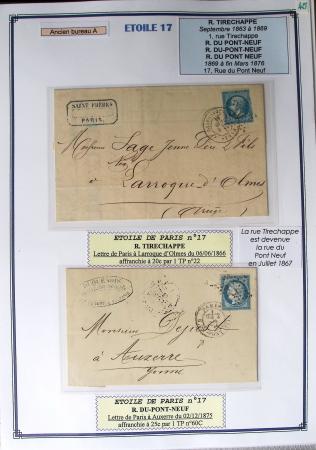 45
Ancien bureau A
ETOILE 17
R. TIRECHAPPE
Septembre 1863 à 1869
1, rue Tirechappe
R. DU PONT-NEUF
R. DU-PONT-NEUF
R. DU PONT NEUF
1869 à fin Mars 1876
17, Rue du Pont Neuf
SAINT FRÈRES
PARIS
Messieurs Sage Jeune Don & fils
à Larroque d'Olmes
(Ariège)
ETOILE DE PARIS n°17
R. TIRECHAPPE
Lettre de Paris à Larroque d'Olmes du 06/06/1866
affranchie à 20c par 1 TP n°22
La rue Tirechappe
est devenue
la rue du
Pont Neuf
en Juillet 1867
Monsieur
à Auxerre
Yonne
ETOILE DE PARIS n°17
R. DU-PONT-NEUF
Lettre de Paris à Auxerre du 02/12/1875
affranchie à 25c par 1 TP n°60C